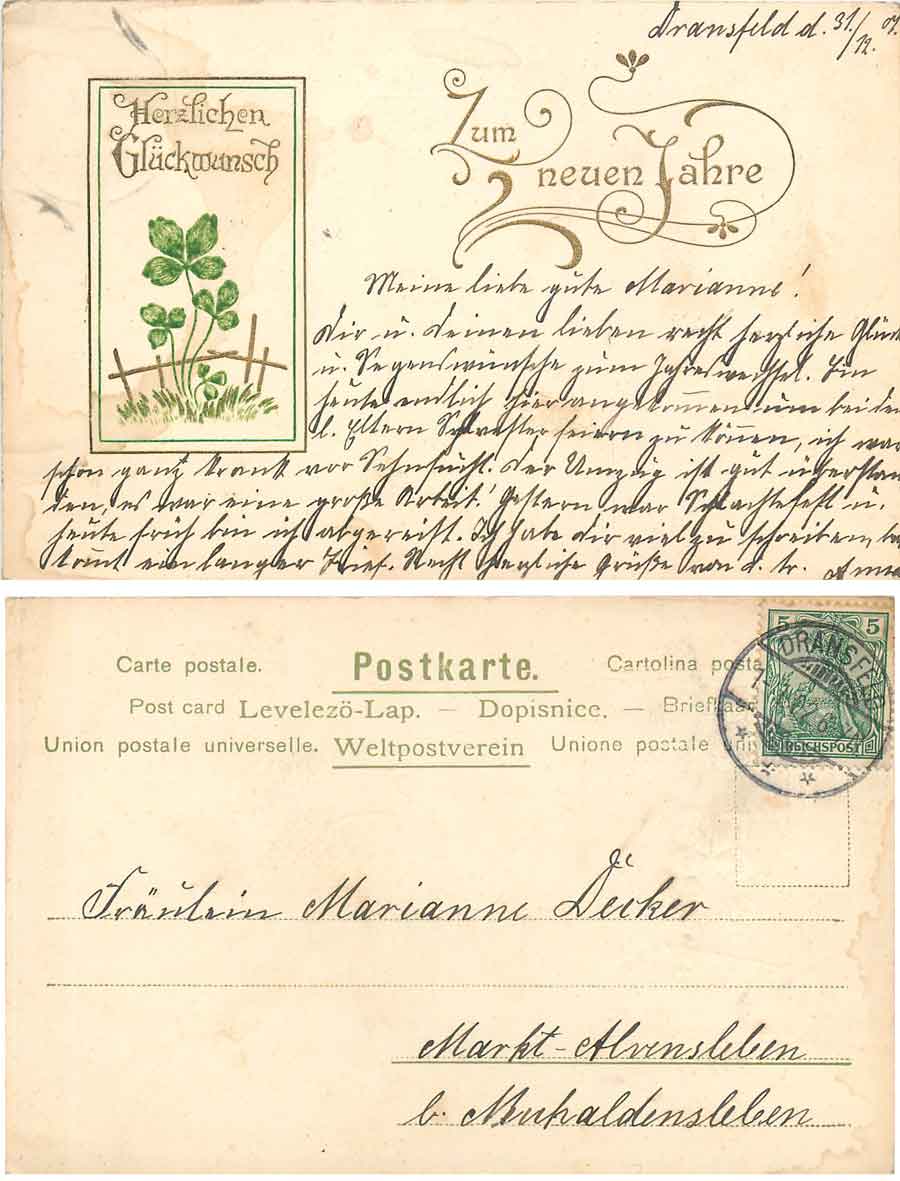 Dransfeld d. 31./12. 01.
Herzlichen
Glückwunsch
Zum
neuen Jahre
Meine liebe gute Marianne!
Dir u. Deinen lieben recht herzliche Glück
u. Segenswünsche zum Jahreswechsel. Bin
heute endlich hier angekommen um bei den
l. Eltern Sylvester feiern zu können, ich war
schon ganz krank vor Sehnsucht. Der Umzug ist gut überstan
den, es war eine große Arbeit! Gestern war Schlachtefest u.
heute früh bin ich abgereist. Ich habe Dir viel zu schreiben,
kommt ein langer Brief. Recht herzliche Grüße von d. tr.
Carte postale. Postkarte. Cartolina posta
Post card Levelezö-Lap. — Dopisnice. — Briefkaar
Union postale universelle. Weltpostverein Unione postale uni
5 5
DRANSFELD
REICHSPOST
Fräulein Marianne Decker
Markt-Alvensleben
b. Neuhaldensleben